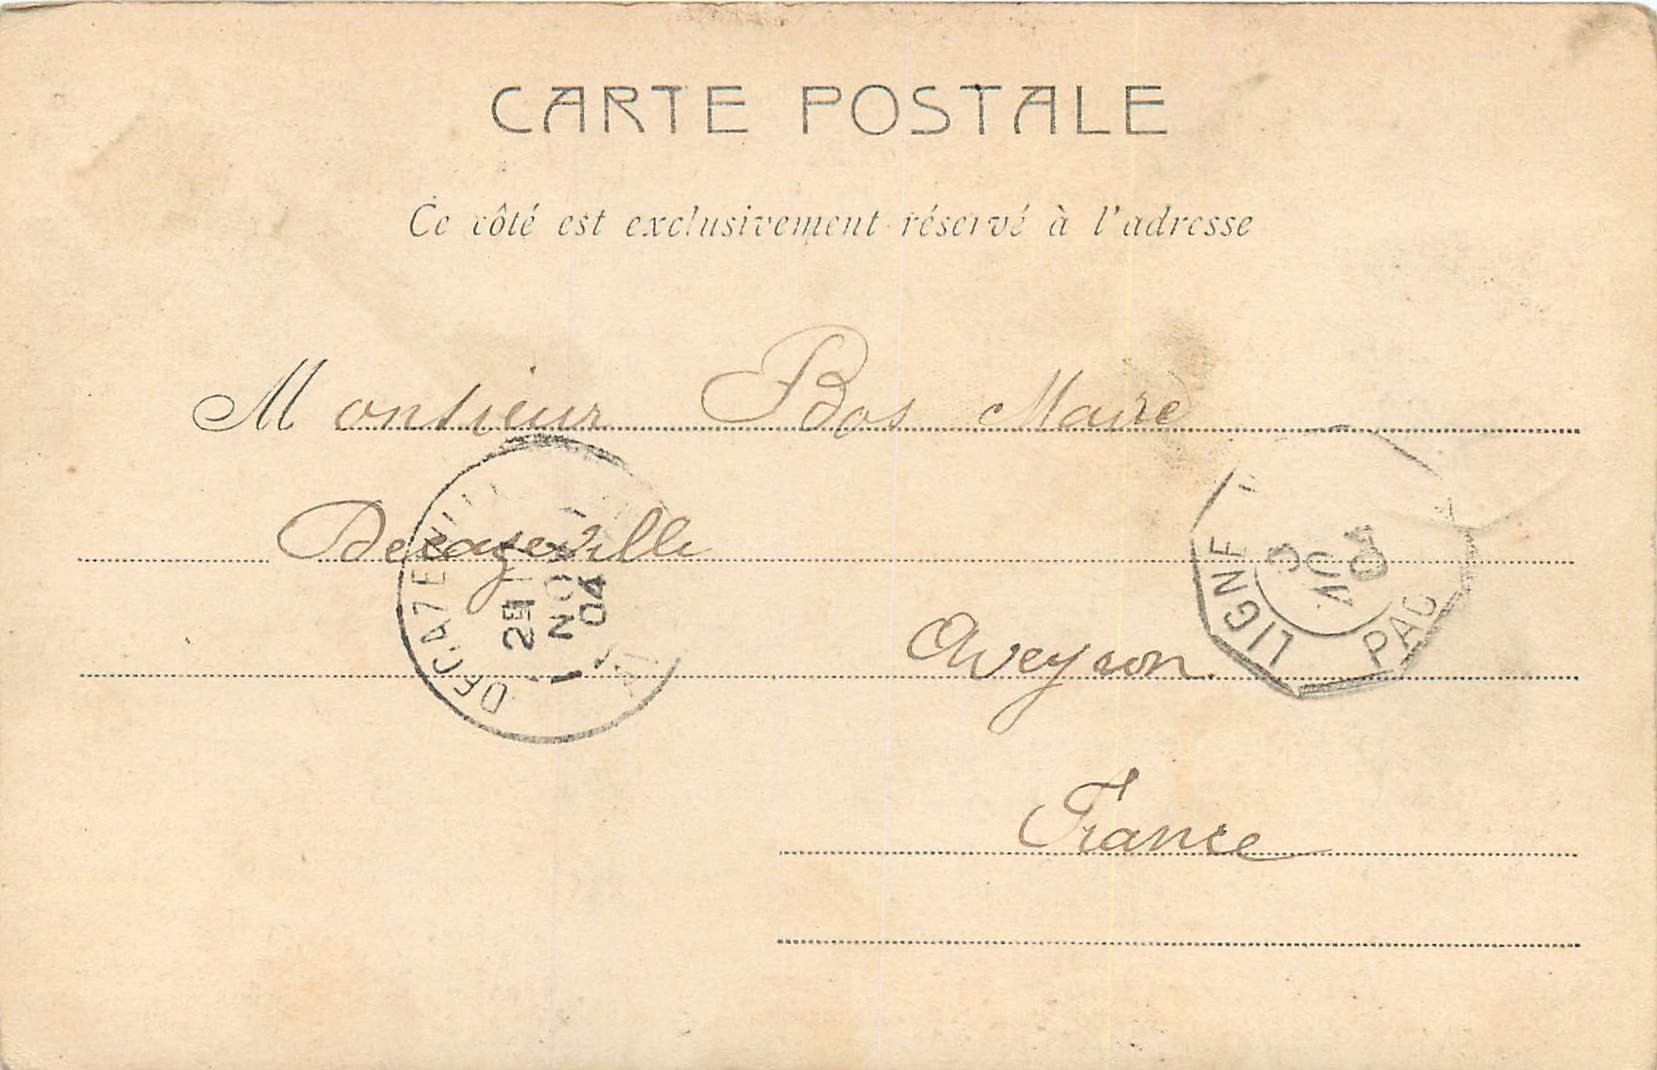 CARTE POSTALE
Ce côté est exclusivement réservé à l'adresse
Monsieur Bos Maire
Decazeville
Aveyron.
France
DECAZEVILL
NOV
04
LIGNE
PAQ
3
04